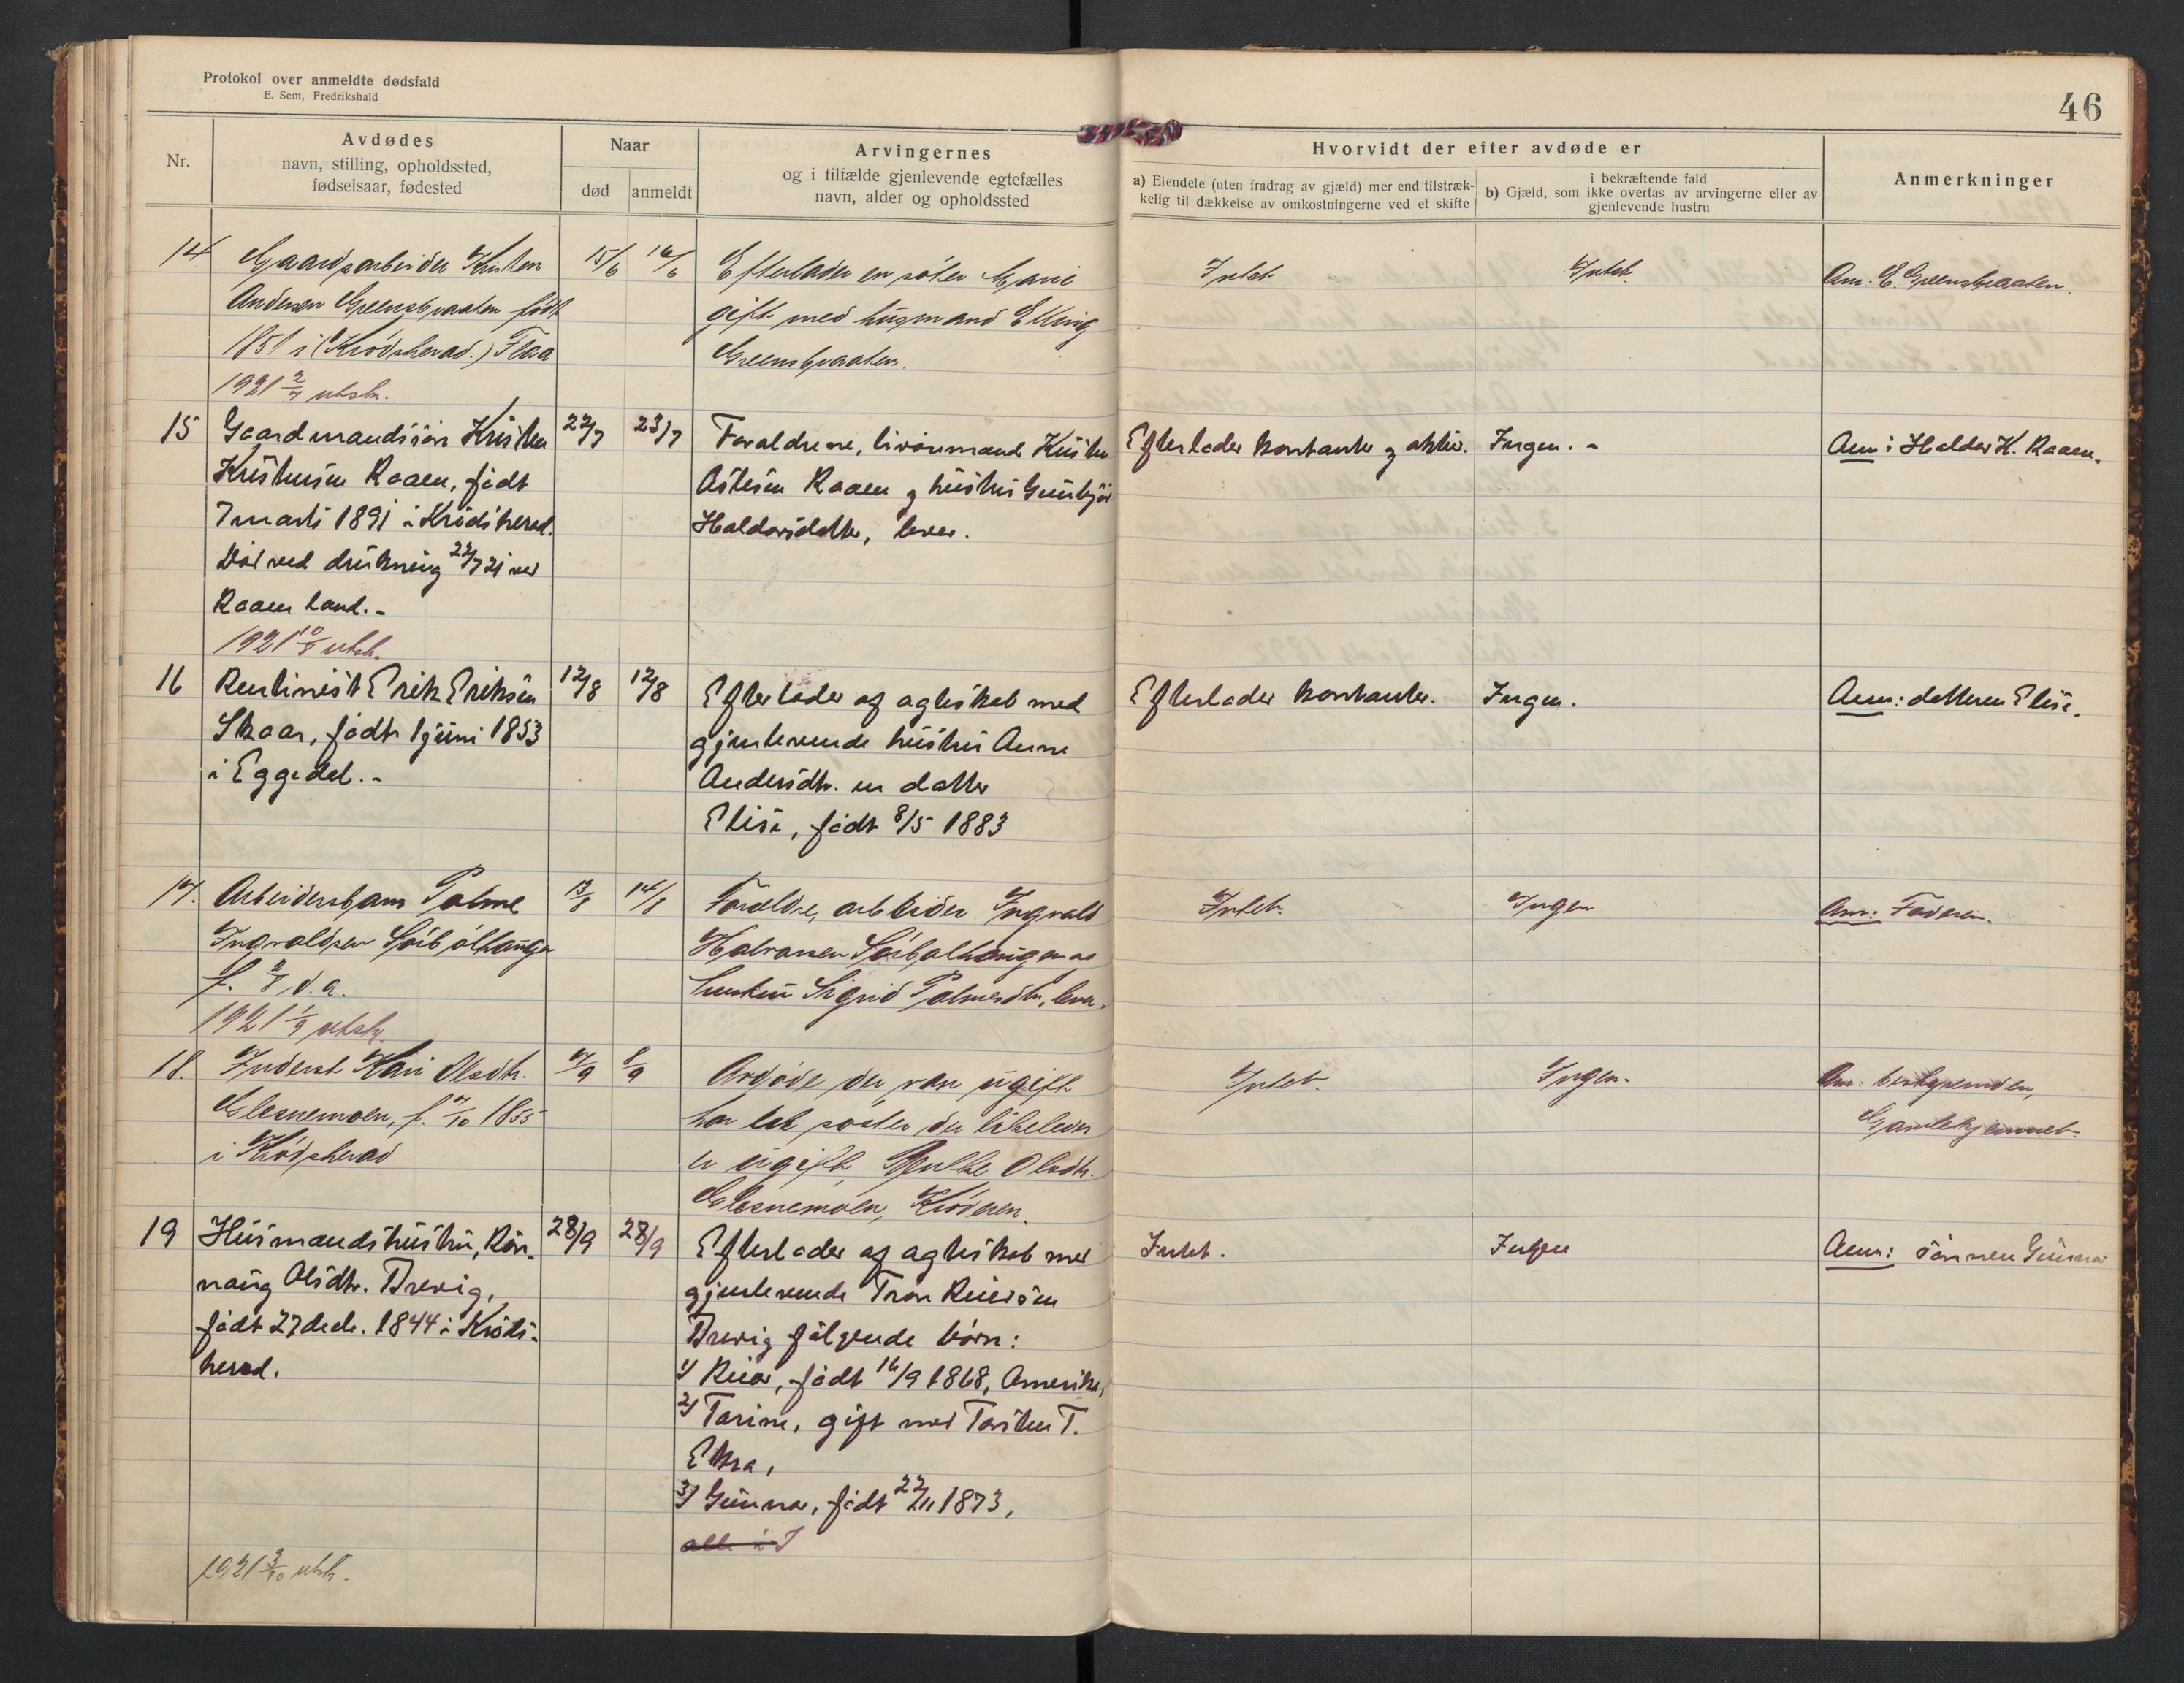 Protokol over anmeldte dødsfald
E. Sem, Fredrikshald
46
Nr.
Avdødes
navn, stilling, opholdssted,
fødselsaar, fødested
Naar
død
anmeldt
Arvingernes
og i tilfælde gjenlevende egtefælles
navn, alder og opholdssted
Hvorvidt der efter avdøde er
a) Eiendele (uten fradrag av gjæld) mer end tilstræk-
kelig til dækkelse av omkostningerne ved et skifte
i bekræftende fald
b) Gjæld, som ikke overtas av arvingerne eller av
gjenlevende hustru
Anmerkninger
14.
Gaardsarbeider Kristen
Andersen Greensbraaten født
1851 i (Krødsherad.) Flesa
1921 2/7 utskr.
15/6
16/6
Efterlader en søster Marie
gift med husmand Elling
Greensbraaten.
Intet
Intet.
Am. E. Greensbraaten.
15
Gaardmandssøn Kristen
Kristensen Raaen, født
7 marts 1891 i Krødsherad.
Død ved drukning 22/7 21 ved
Raaen land.-
1921 10/8 utskr.
22/7
23/7
Forældrene, livøremand Kristen
Astesen Raaen og hustru Gunbjør
Haldorsdatter, lever.
Efterlader kontanter og aktier.
Ingen.-
Anm: Haldor K. Raaen.
16
Rentenist Erik Eriksen
Skaar, født 1 juni 1853
i Eggedal.-
12/8
12/8
Efterlader af ægteskab med
gjenlevende hustru Anne
Andersdtr. en datter
Elise, født 8/5 1883
Efterlader kontanter.
Ingen.
Anm: datteren Elise.
17.
Arbeidersbarn Palme
Ingvaldsen Sørbølhaugen
f. 2/8 d. a.
1921 1/9 utskr.
13/8
14/8
Forældre, arbeider Ingvald
Halvorsen Sørbølhaugen og
hustru Sigrid Palmesdtr. lever.
Intet.
Ingen
Anm: Faderen.
18.
Inderst Kari Olsdtr.
Glesnemoen, f. 7/10 1855
i Krødsherad
7/9
8/9
Avdøde der var ugift
har en søster der likeledes
er ugift, Gulle Olsdtr.
Glesnemoen, Krøderen.
Intet.
Ingen.
Am: bestyrerinden,
Gamlehjemmet.
19
Husmandshustru, Røn-
naug Olsdtr. Brevig,
født 27 decb. 1844 i Kröds-
herad.
1921 3/10 utskr.
28/9
28/9
Efterlader af ægteskab med
gjenlevende Tron Reiersen
Brevig følgende børn:
1) Reier, født 16/9 1868, Amerika,
2) Torine, gift med Torsten T.
Ekra,
3) Gunnar, født 22/11 1873,
alle i
Intet.
Ingen
Anm: sønnen Gunnar